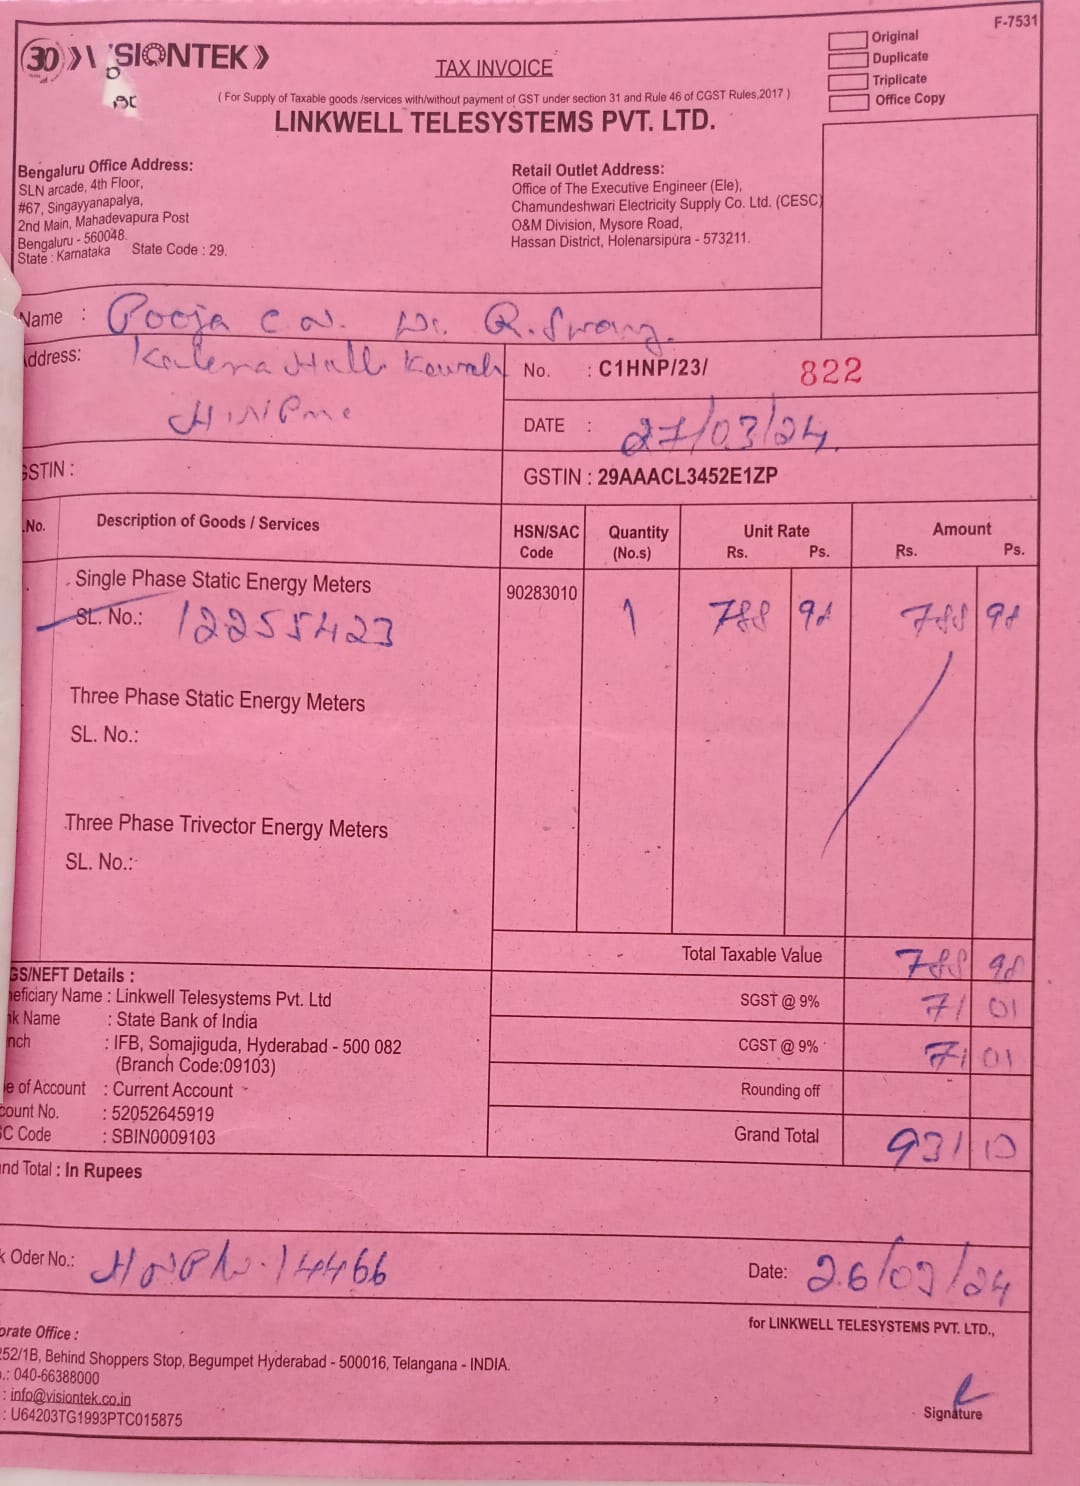 F-7531
30 VISIONTEK
TAX INVOICE
Original
Duplicate
Triplicate
Office Copy
( For Supply of Taxable goods /services with/without payment of GST under section 31 and Rule 46 of CGST Rules,2017 )
LINKWELL TELESYSTEMS PVT. LTD.
Bengaluru Office Address:
SLN arcade, 4th Floor,
#67, Singayyanapalya,
2nd Main, Mahadevapura Post
Bengaluru - 560048.
State : Karnataka State Code : 29.
Retail Outlet Address:
Office of The Executive Engineer (Ele),
Chamundeshwari Electricity Supply Co. Ltd. (CESC)
O&M Division, Mysore Road,
Hassan District, Holenarsipura - 573211.
Name : Pooja C N.
ddress:
No. : C1HNP/23/ 822
DATE : 27/03/24.
GSTIN : 
GSTIN : 29AAACL3452E1ZP
.No. Description of Goods / Services HSN/SAC Code Quantity (No.s) Unit Rate Rs. Ps. Amount Rs. Ps.
Single Phase Static Energy Meters 90283010 1 788 98 788 98
SL. No.: 12255423
Three Phase Static Energy Meters
SL. No.:
Three Phase Trivector Energy Meters
SL. No.:
Total Taxable Value 788 98
SGST @ 9% 71 01
CGST @ 9% 71 01
Rounding off
Grand Total 931
GS/NEFT Details :
eficiary Name : Linkwell Telesystems Pvt. Ltd
nk Name : State Bank of India
nch : IFB, Somajiguda, Hyderabad - 500 082
(Branch Code:09103)
e of Account : Current Account
count No. : 52052645919
SC Code : SBIN0009103
nd Total : In Rupees
k Oder No.: 14466
Date: 26/03/24
for LINKWELL TELESYSTEMS PVT. LTD.,
orate Office :
252/1B, Behind Shoppers Stop, Begumpet Hyderabad - 500016, Telangana - INDIA.
.: 040-66388000
: info@visiontek.co.in
: U64203TG1993PTC015875
Signature